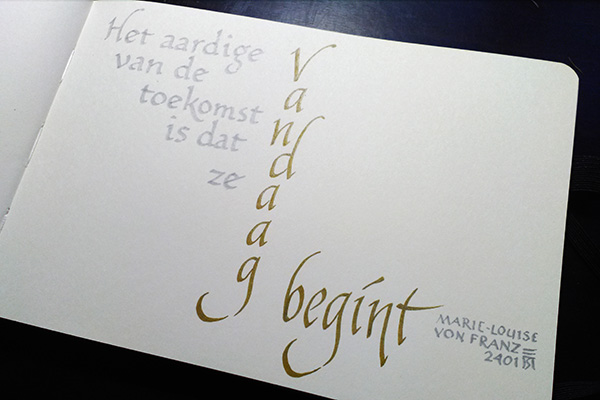 Het aardige
van de
toekomst
is dat
ze
Vandaag
begint
MARIE-LOUISE
VON FRANZ
2401